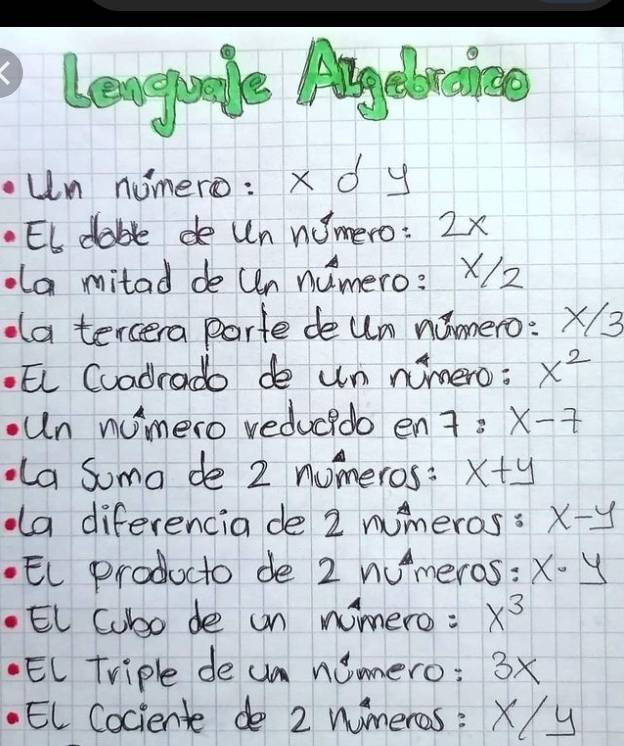 Lenguaje Algebraico
• Un número: x ó y
• El doble de un número: 2x
• la mitad de un número: x/2
• la tercera parte de un número: x/3
• El Cuadrado de un número: x²
• Un número reducido en 7: x-7
• La Suma de 2 números: x+y
• la diferencia de 2 números: x-y
• El producto de 2 números: x·y
• El Cubo de un número: x³
• El Triple de un número: 3x
• El Cociente de 2 números: x/y